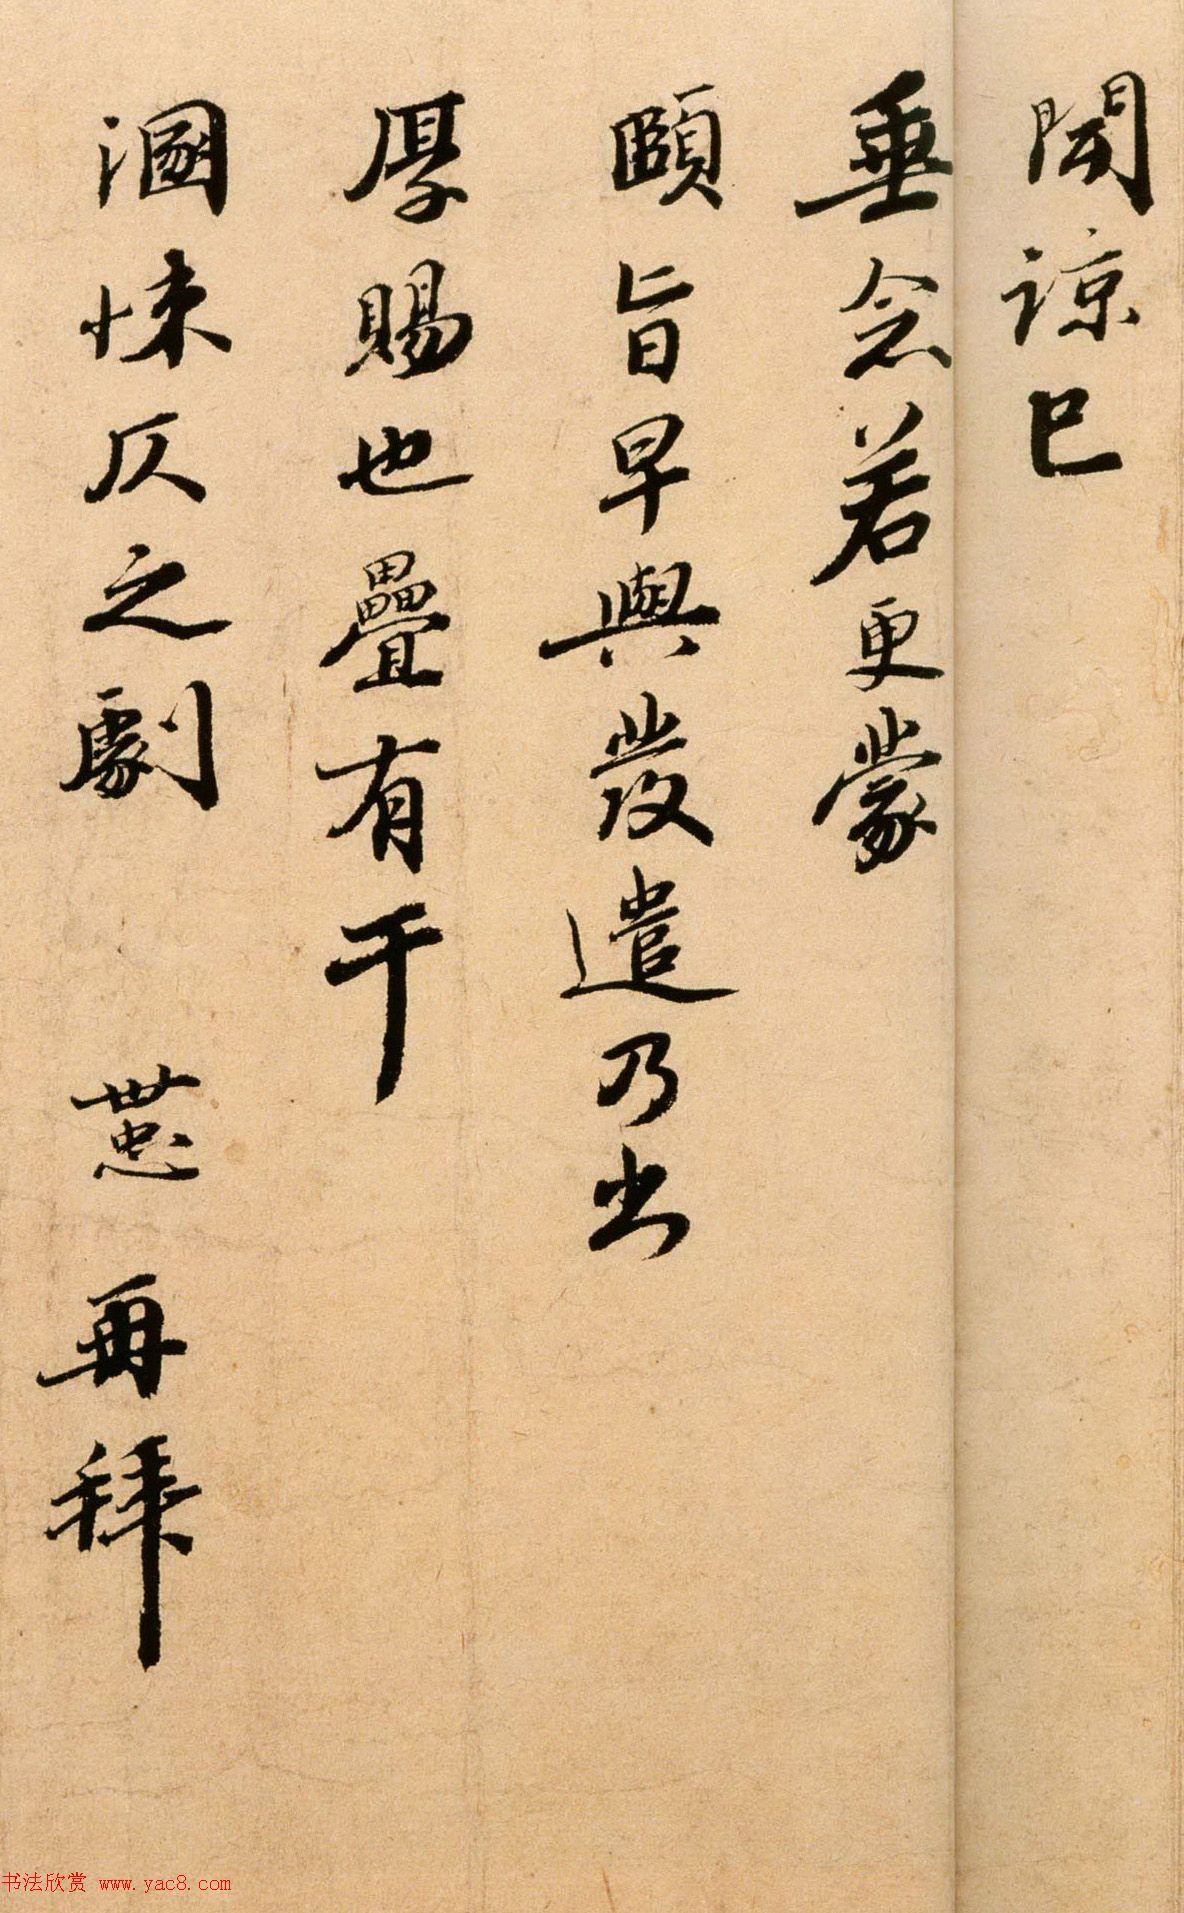 聞諒已
垂念若更蒙
頤旨早與發遣乃出
厚賜也疊有干
溷悚仄之劇 再拜
书法欣赏 www.yac8.com